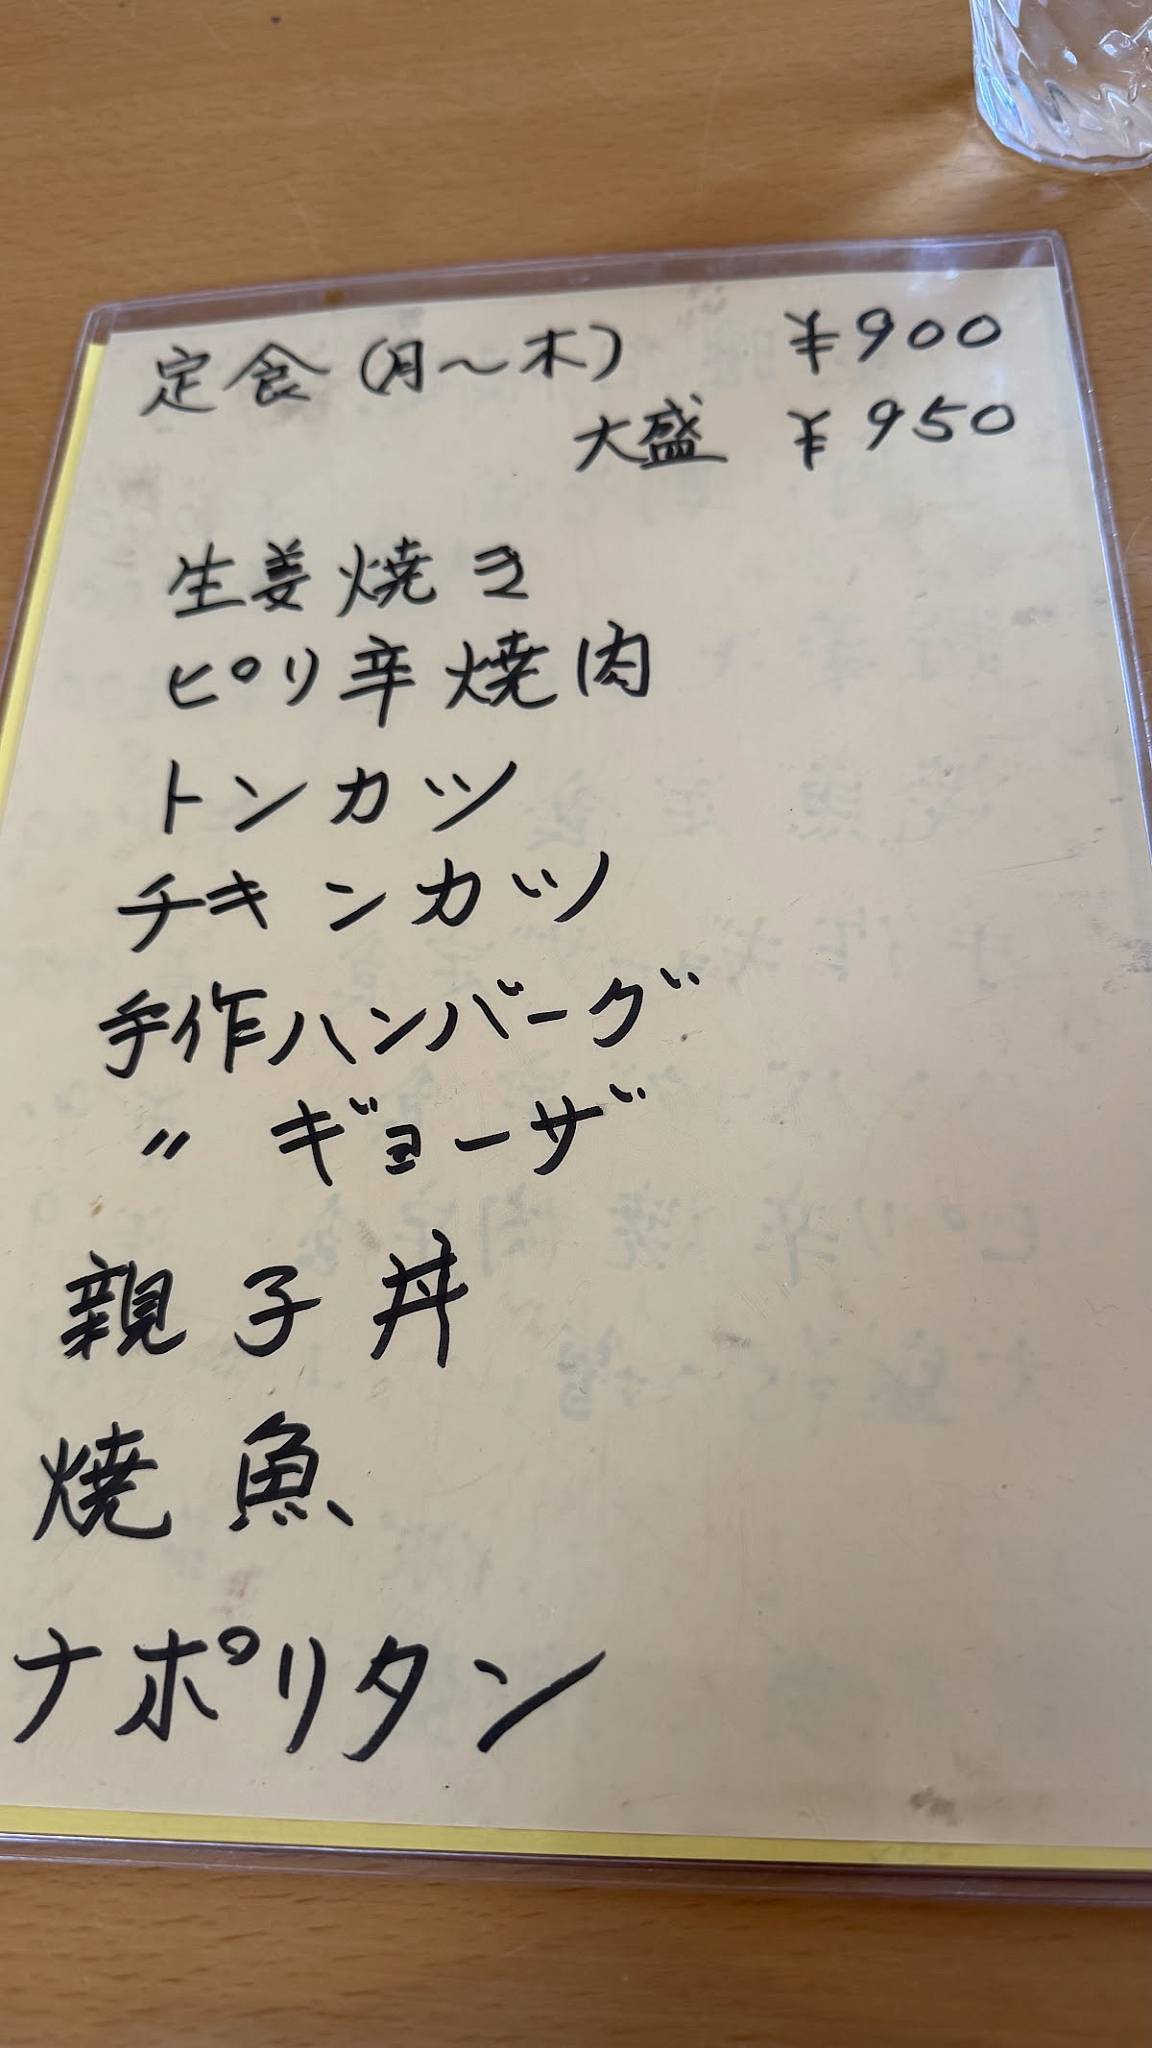 定食(月〜木) ¥900
大盛 ¥950
生姜焼き
ピリ辛焼肉
トンカツ
チキンカツ
手作ハンバーグ
〃 ギョーザ
親子丼
焼魚
ナポリタン